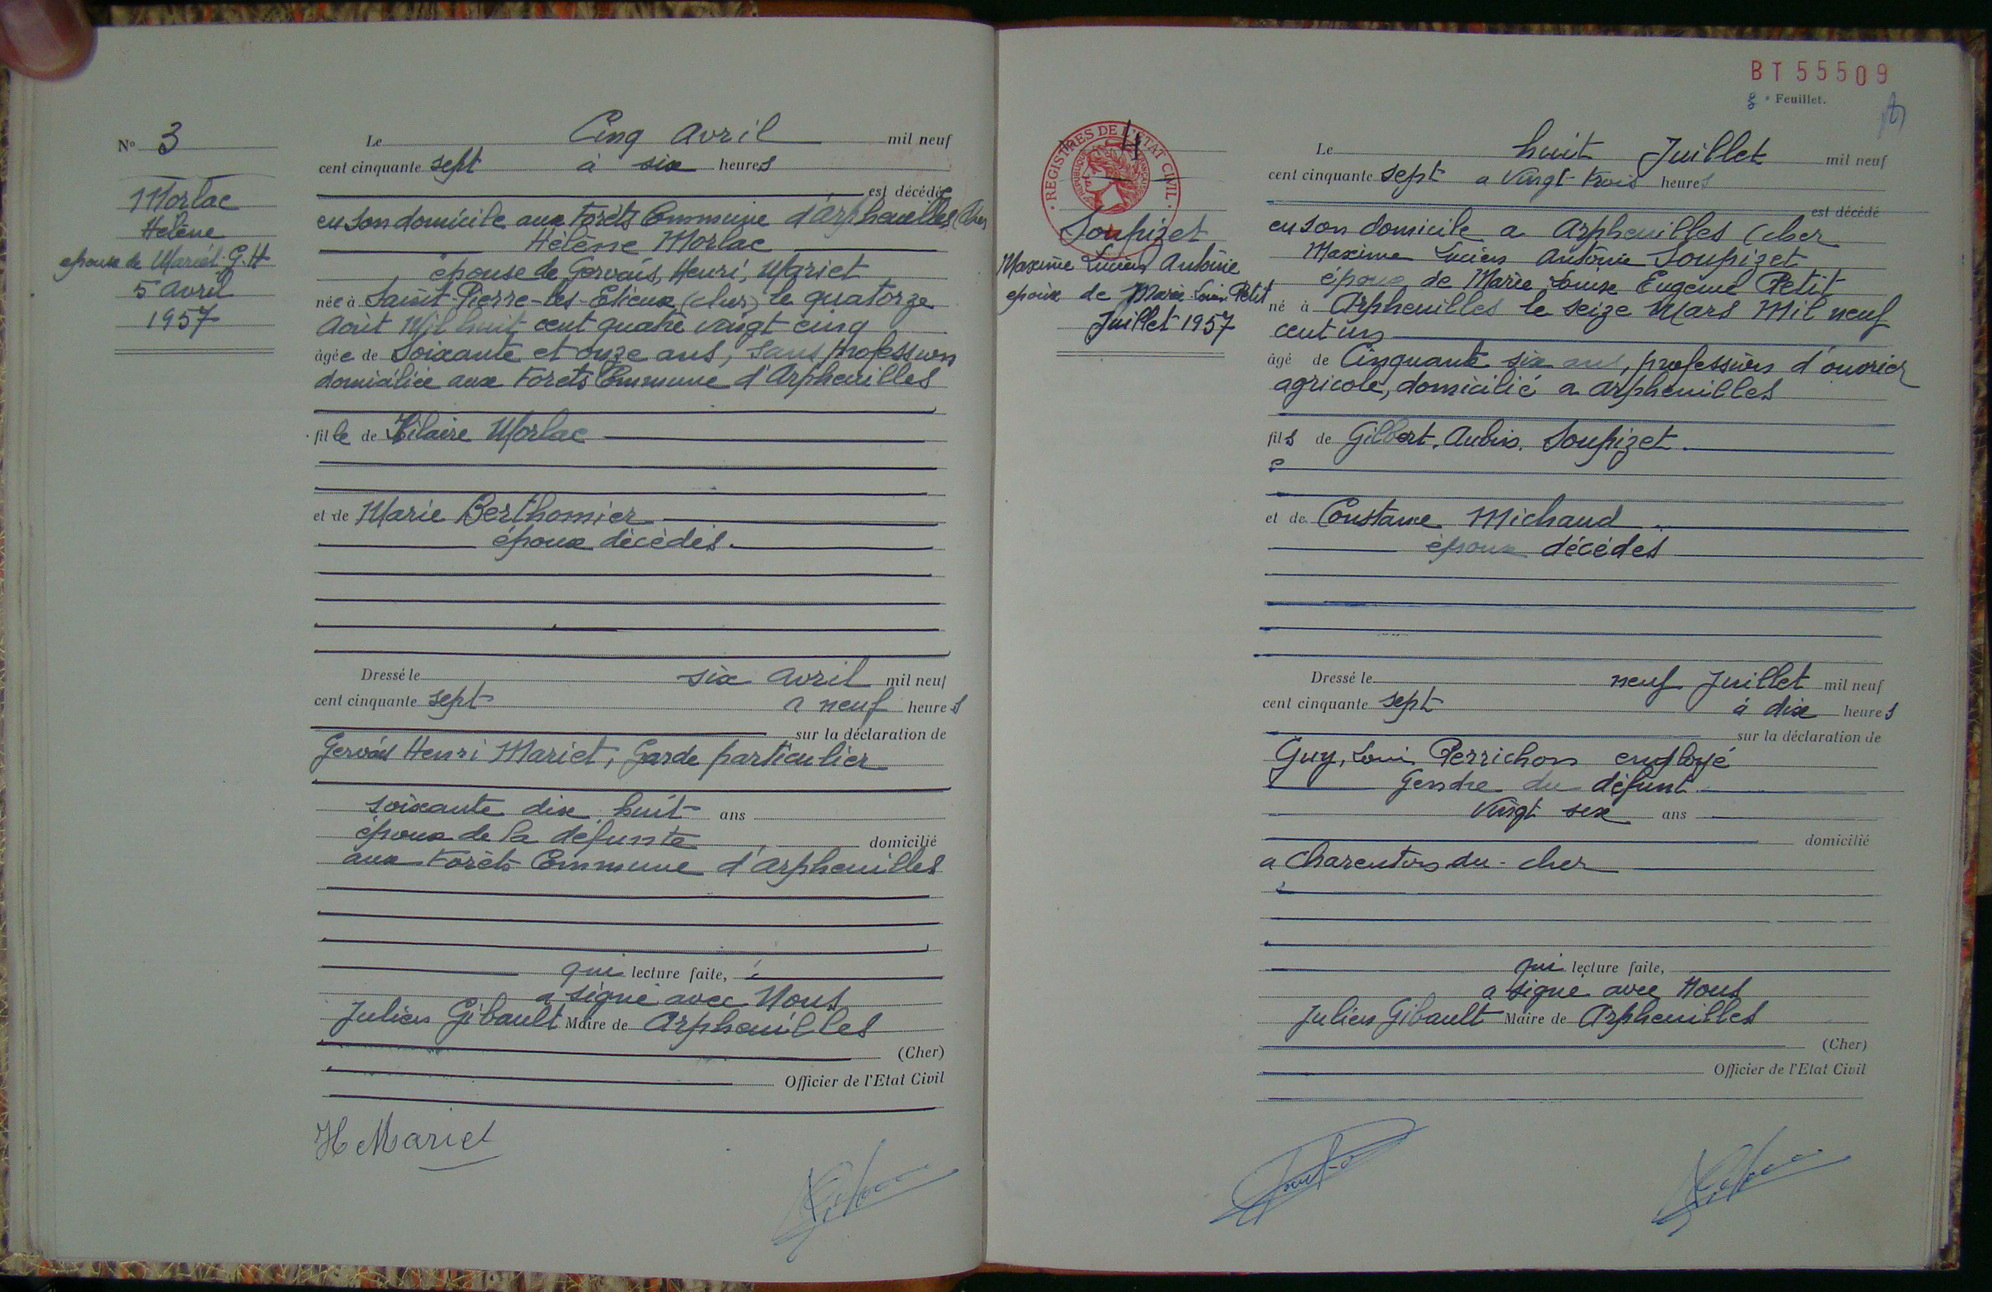 N° 3
Morlac
Hélène
épouse de Mariet G. H
5 avril
1957
Le Cinq avril mil neuf
cent cinquante sept à six heures
est décédée
en son domicile aux Forêts Commune d'Arpheuilles (Cher
Hélène Morlac
épouse de Gervais, Henri, Mariet
née à Saint-Pierre-les-Etieux (cher) le quatorze
Août Mil huit cent quatre vingt cinq
âgée de Soixante et onze ans, sans profession
domiciliée aux Forêts Commune d'Arpheuilles
fille de Hilaire Morlac
et de Marie Berthomier
époux décédés.
Dressé le six avril mil neuf
cent cinquante sept à neuf heures
sur la déclaration de
Gervais Henri Mariet, Garde particulier
soixante dix huit ans
époux de la défunte domicilié
aux Forêts Commune d'Arpheuilles
qui lecture faite,
a signé avec Nous
Julien Gibault Maire de Arpheuilles
(Cher)
Officier de l'Etat Civil
H Mariet
BT 55509
3e Feuillet.
4
REGISTRES DE L'ETAT CIVIL
Soupizet
Maxime Lucien Antoine
époux de Marie-Louise Petit
Juillet 1957
Le huit Juillet mil neuf
cent cinquante sept a vingt trois heures
est décédé
en son domicile a Arpheuilles (cher
Maxime Lucien Antoine Soupizet
époux de Marie Louise Eugénie Petit
né à Arpheuilles le seize Mars Mil neuf
cent un
âgé de Cinquante six ans, profession d'ouvrier
agricole, domicilié a Arpheuilles
fils de Gilbert, Aubin, Soupizet.
et de Constance Michaud
époux décédés
Dressé le neuf Juillet mil neuf
cent cinquante sept à dix heures
sur la déclaration de
Guy, Louis Perrichon employé
Gendre du défunt
Vingt six ans
domicilié
a Charenton-du-cher
qui lecture faite,
a signé avec Nous
Julien Gibault Maire de Arpheuilles
(Cher)
Officier de l'Etat Civil